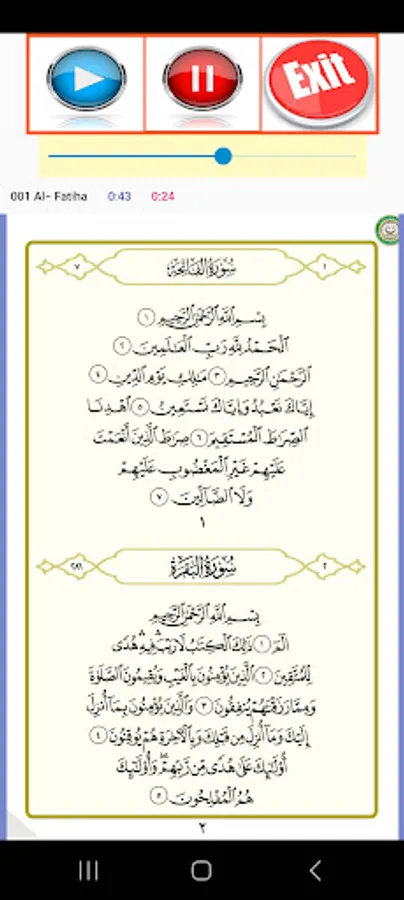 Exit
001 Al- Fatiha 0:43 0:24
٧ سُورَةُ الفَاتِحَةِ ١
بِسْمِ اللَّهِ الرَّحْمَٰنِ الرَّحِيمِ ١
الْحَمْدُ لِلَّهِ رَبِّ الْعَالَمِينَ ٢
الرَّحْمَٰنِ الرَّحِيمِ ٣ مَالِكِ يَوْمِ الدِّينِ ٤
إِيَّاكَ نَعْبُدُ وَإِيَّاكَ نَسْتَعِينُ ٥ اهْدِنَا
الصِّرَاطَ الْمُسْتَقِيمَ ٦ صِرَاطَ الَّذِينَ أَنْعَمْتَ
عَلَيْهِمْ غَيْرِ الْمَغْضُوبِ عَلَيْهِمْ
وَلَا الضَّالِّينَ ٧
١
٢٨٦ سُورَةُ البَقَرَةِ ٢
بِسْمِ اللَّهِ الرَّحْمَٰنِ الرَّحِيمِ
الم ١ ذَٰلِكَ الْكِتَابُ لَا رَيْبَ فِيهِ هُدًى
لِّلْمُتَّقِينَ ٢ الَّذِينَ يُؤْمِنُونَ بِالْغَيْبِ وَيُقِيمُونَ الصَّلَاةَ
وَمِمَّا رَزَقْنَاهُمْ يُنفِقُونَ ٣ وَالَّذِينَ يُؤْمِنُونَ بِمَا أُنزِلَ
إِلَيْكَ وَمَا أُنزِلَ مِن قَبْلِكَ وَبِالْآخِرَةِ هُمْ يُوقِنُونَ ٤
أُولَٰئِكَ عَلَىٰ هُدًى مِّن رَّبِّهِمْ وَأُولَٰئِكَ
هُمُ الْمُفْلِحُونَ ٥
٢